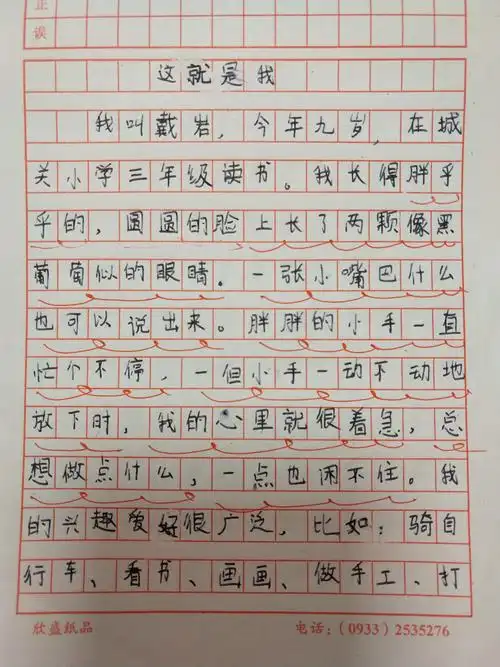 正
误
这就是我
我叫戴岩，今年九岁，在城
关小学三年级读书。我长得胖乎
乎的，圆圆的脸上长了两颗像黑
葡萄似的眼睛。一张小嘴巴什么
也可以说出来。胖胖的小手一直
忙个不停，一但小手一动不动地
放下时，我的心里就很着急，总
想做点什么，一点也闲不住。我
的兴趣爱好很广泛，比如：骑自
行车、看书、画画、做手工、打
欣盛纸品
电话：(0933) 2535276